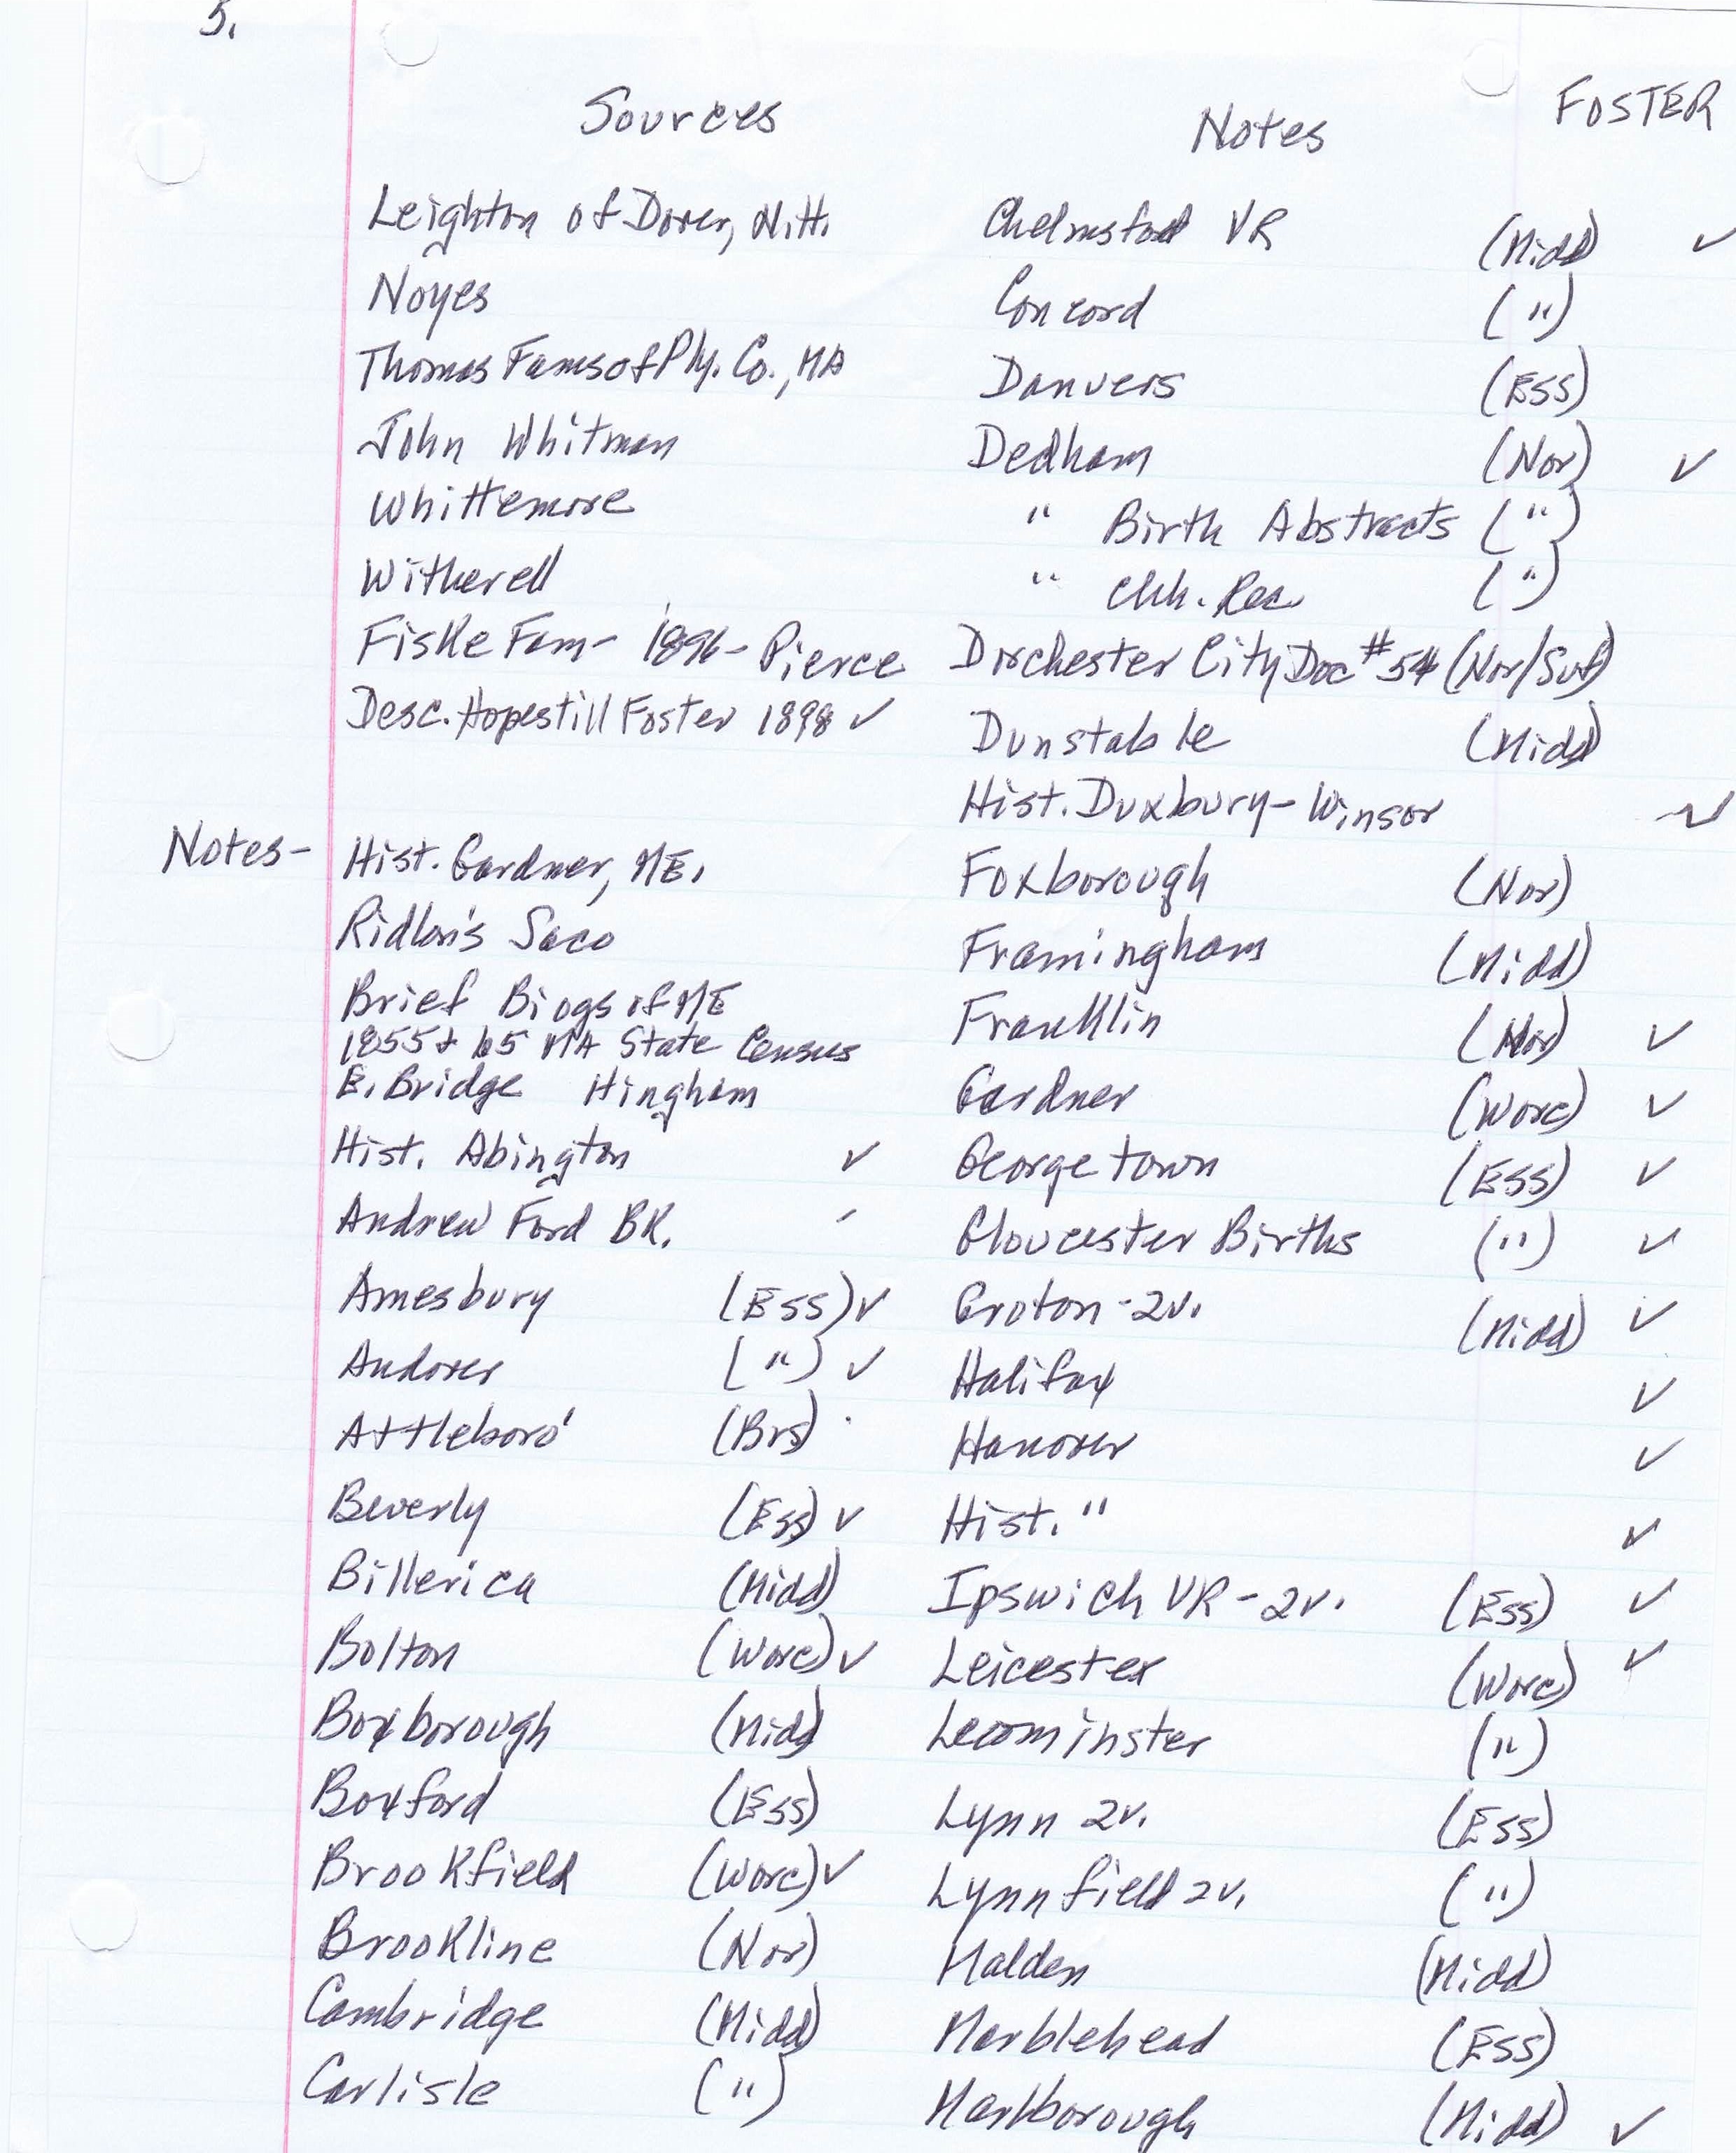 5.
Sources
Leighton of Dover, N.H.
Noyes
Thomas Fams of Ply. Co., MA
John Whitman
Whittemore
Witherell
Fiske Fam - 1896 - Pierce
Desc. Hopestill Foster 1898 ✓
Notes - Hist. Gardner, ME.
Ridlon's Saco
Brief Biogs of ME
1855 + 65 MA State Census
E. Bridge Hingham
Hist. Abington ✓
Andrew Ford BK.
Amesbury (Ess) ✓
Andover (") ✓
Attleboro' (Brs)
Beverly (Ess) ✓
Billerica (Midd)
Bolton (Worc) ✓
Boxborough (Midd)
Boxford (Ess)
Brookfield (Worc) ✓
Brookline (Nor)
Cambridge (Midd)
Carlisle (")
Notes FOSTER
Chelmsford VR (Midd) ✓
Concord (")
Danvers (Ess)
Dedham (Nor) ✓
" Birth Abstracts (")
" Chh. Rec. (")
Dorchester City Doc #54 (Nor/Suf)
Dunstable (Midd)
Hist. Duxbury - Winsor ✓
Foxborough (Nor)
Framingham (Midd)
Franklin (Nor) ✓
Gardner (Worc) ✓
Georgetown (Ess) ✓
Gloucester Births (") ✓
Groton - 2v. (Midd) ✓
Halifax ✓
Hanover ✓
Hist. " ✓
Ipswich VR - 2v. (Ess) ✓
Leicester (Worc) ✓
Leominster (")
Lynn 2v. (Ess)
Lynnfield 2v. (")
Malden (Midd)
Marblehead (Ess)
Marlborough (Midd) ✓